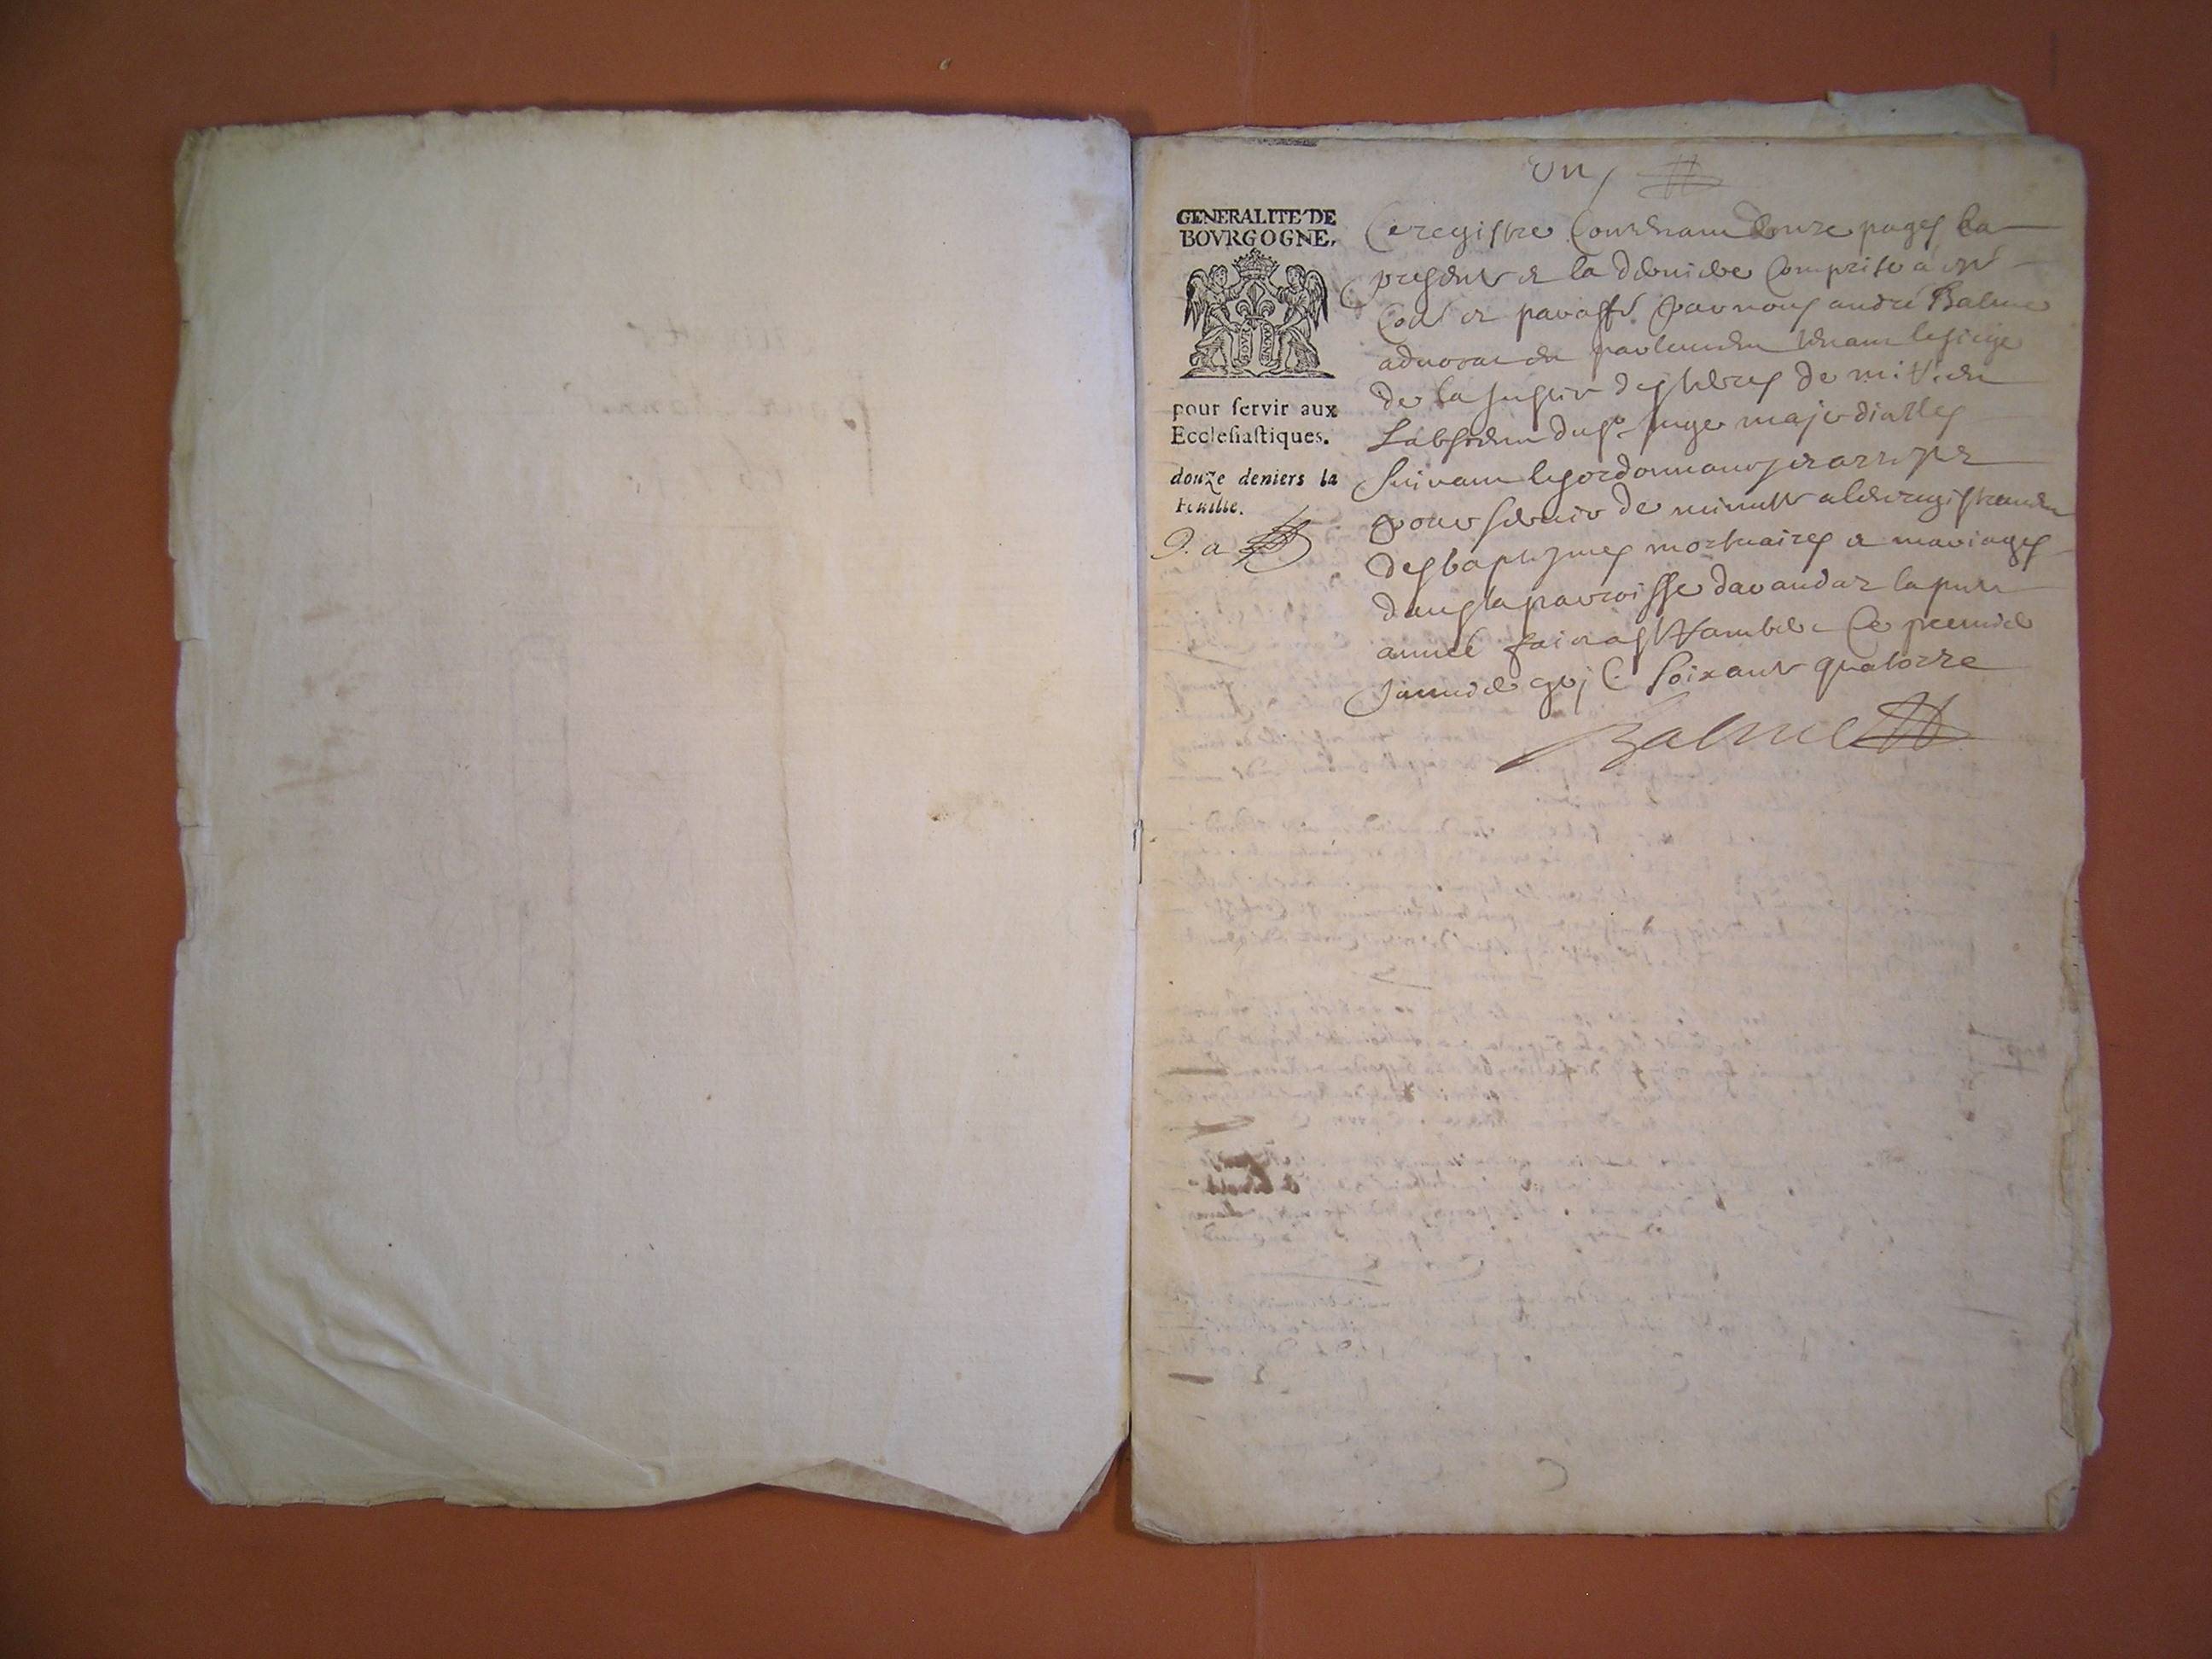 un
GENERALITE DE
BOVRGOGNE,
pour ſervir aux
Eccleſiaſtiques.
douze deniers la
Feuille.
Ce registre Contenant douze pages la
presente et la derniere Comprise a esté
Coté et paraffé par nous andré Balme
advocat en parlement tenant le siege
de la Justice des terres de
Labsence du sr Juge maje dicelles
suivant les ordonnances et arrests
pour servir de minutte a lenregistrement
des baptesmes mortuaires et mariages
dans la parroisse
année Ce premier
Janvier gvj C soixante quatorze
Balme